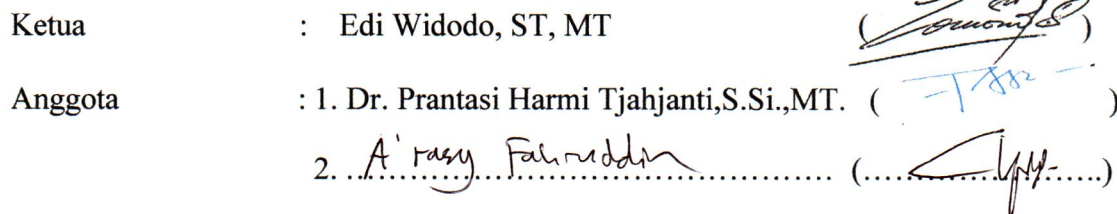 Ketua : Edi Widodo, ST, MT ( )
Anggota : 1. Dr. Prantasi Harmi Tjahjanti,S.Si.,MT. ( )
2. A'rasy Fahruddin (..................)